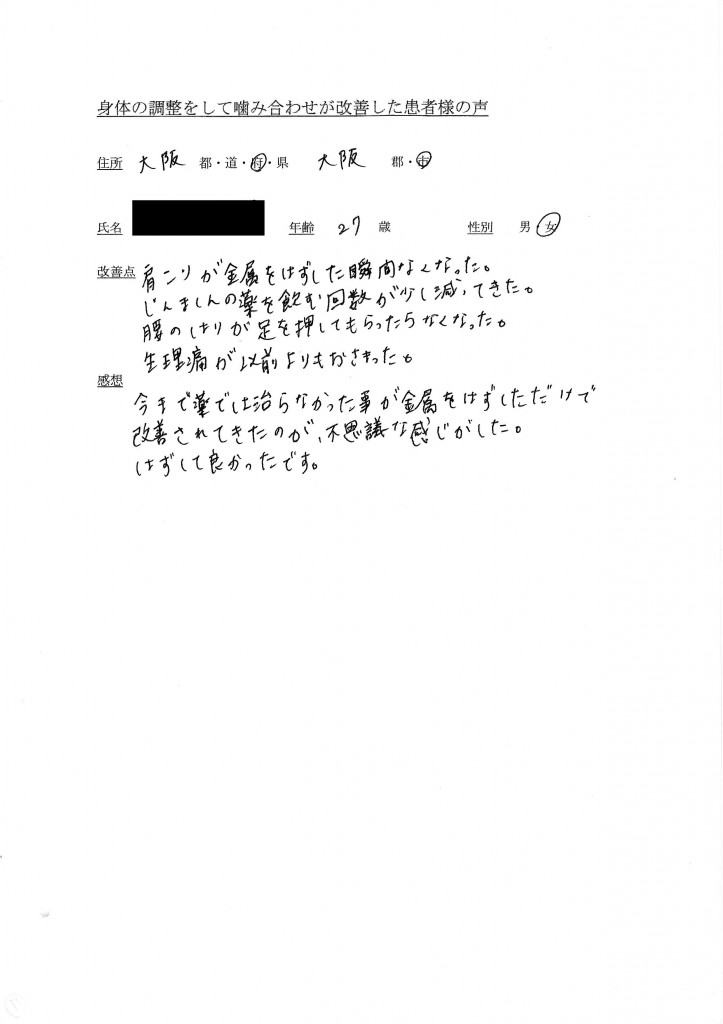 身体の調整をして噛み合わせが改善した患者様の声
住所 大阪 都・道・府・県 大阪 郡・市
氏名 年齢 27 歳 性別 男・女
改善点 肩こりが金属をはずした瞬間なくなった。
じんましんの薬を飲む回数が少し減ってきた。
腰のはりが足を押してもらったらなくなった。
生理痛が以前よりもおさまった。
感想
今まで薬では治らなかった事が金属をはずしただけで
改善されてきたのが、不思議な感じがした。
はずして良かったです。